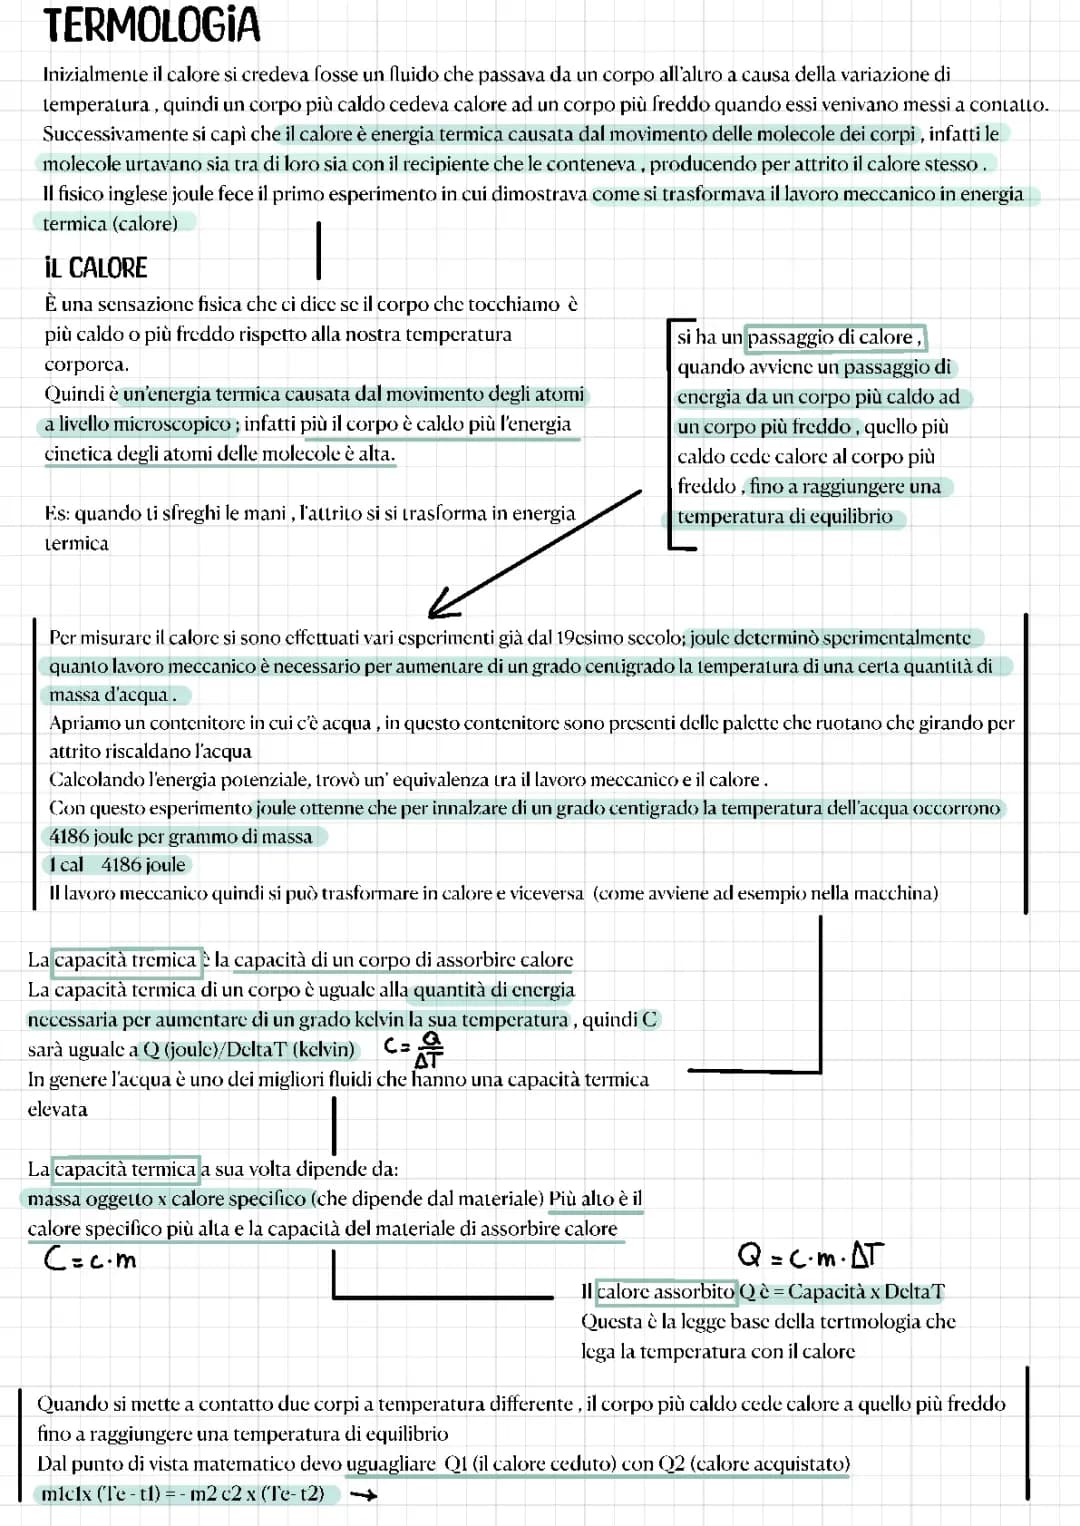 TERMOLOGiA
Inizialmente il calore si credeva fosse un fluido che passava da un corpo all'altro a causa della variazione di
temperatura , quindi un corpo più caldo cedeva calore ad un corpo più freddo quando essi venivano messi a contatto.
Successivamente si capì che il calore è energia termica causata dal movimento delle molecole dei corpi , infatti le
molecole urtavano sia tra di loro sia con il recipiente che le conteneva , producendo per attrito il calore stesso .
Il fisico inglese joule fece il primo esperimento in cui dimostrava come si trasformava il lavoro meccanico in energia
termica (calore)
iL CALORE
È una sensazione fisica che ci dice se il corpo che tocchiamo è
più caldo o più freddo rispetto alla nostra temperatura
corporea.
Quindi è un'energia termica causata dal movimento degli atomi
a livello microscopico ; infatti più il corpo è caldo più l'energia
cinetica degli atomi delle molecole è alta.
Es: quando ti sfreghi le mani , l'attrito si si trasforma in energia
termica
si ha un passaggio di calore ,
quando avviene un passaggio di
energia da un corpo più caldo ad
un corpo più freddo , quello più
caldo cede calore al corpo più
freddo , fino a raggiungere una
temperatura di equilibrio
Per misurare il calore si sono effettuati vari esperimenti già dal 19esimo secolo; joule determinò sperimentalmente
quanto lavoro meccanico è necessario per aumentare di un grado centigrado la temperatura di una certa quantità di
massa d'acqua .
Apriamo un contenitore in cui c'è acqua , in questo contenitore sono presenti delle palette che ruotano che girando per
attrito riscaldano l'acqua
Calcolando l'energia potenziale, trovò un' equivalenza tra il lavoro meccanico e il calore .
Con questo esperimento joule ottenne che per innalzare di un grado centigrado la temperatura dell'acqua occorrono
4186 joule per grammo di massa
1 cal 4186 joule
Il lavoro meccanico quindi si può trasformare in calore e viceversa (come avviene ad esempio nella macchina)
La capacità tremica è la capacità di un corpo di assorbire calore
La capacità termica di un corpo è uguale alla quantità di energia
necessaria per aumentare di un grado kelvin la sua temperatura , quindi C
sarà uguale a Q (joule)/DeltaT (kelvin) C = Q/ΔT
In genere l'acqua è uno dei migliori fluidi che hanno una capacità termica
elevata
La capacità termica a sua volta dipende da:
massa oggetto x calore specifico (che dipende dal materiale) Più alto è il
calore specifico più alta e la capacità del materiale di assorbire calore
C = c · m
Q = c · m · ΔT
Il calore assorbito Q è = Capacità x DeltaT
Questa è la legge base della tertmologia che
lega la temperatura con il calore
Quando si mette a contatto due corpi a temperatura differente , il corpo più caldo cede calore a quello più freddo
fino a raggiungere una temperatura di equilibrio
Dal punto di vista matematico devo uguagliare Q1 (il calore ceduto) con Q2 (calore acquistato)
m1c1x (Te - t1) = - m2 c2 x (Te- t2) →